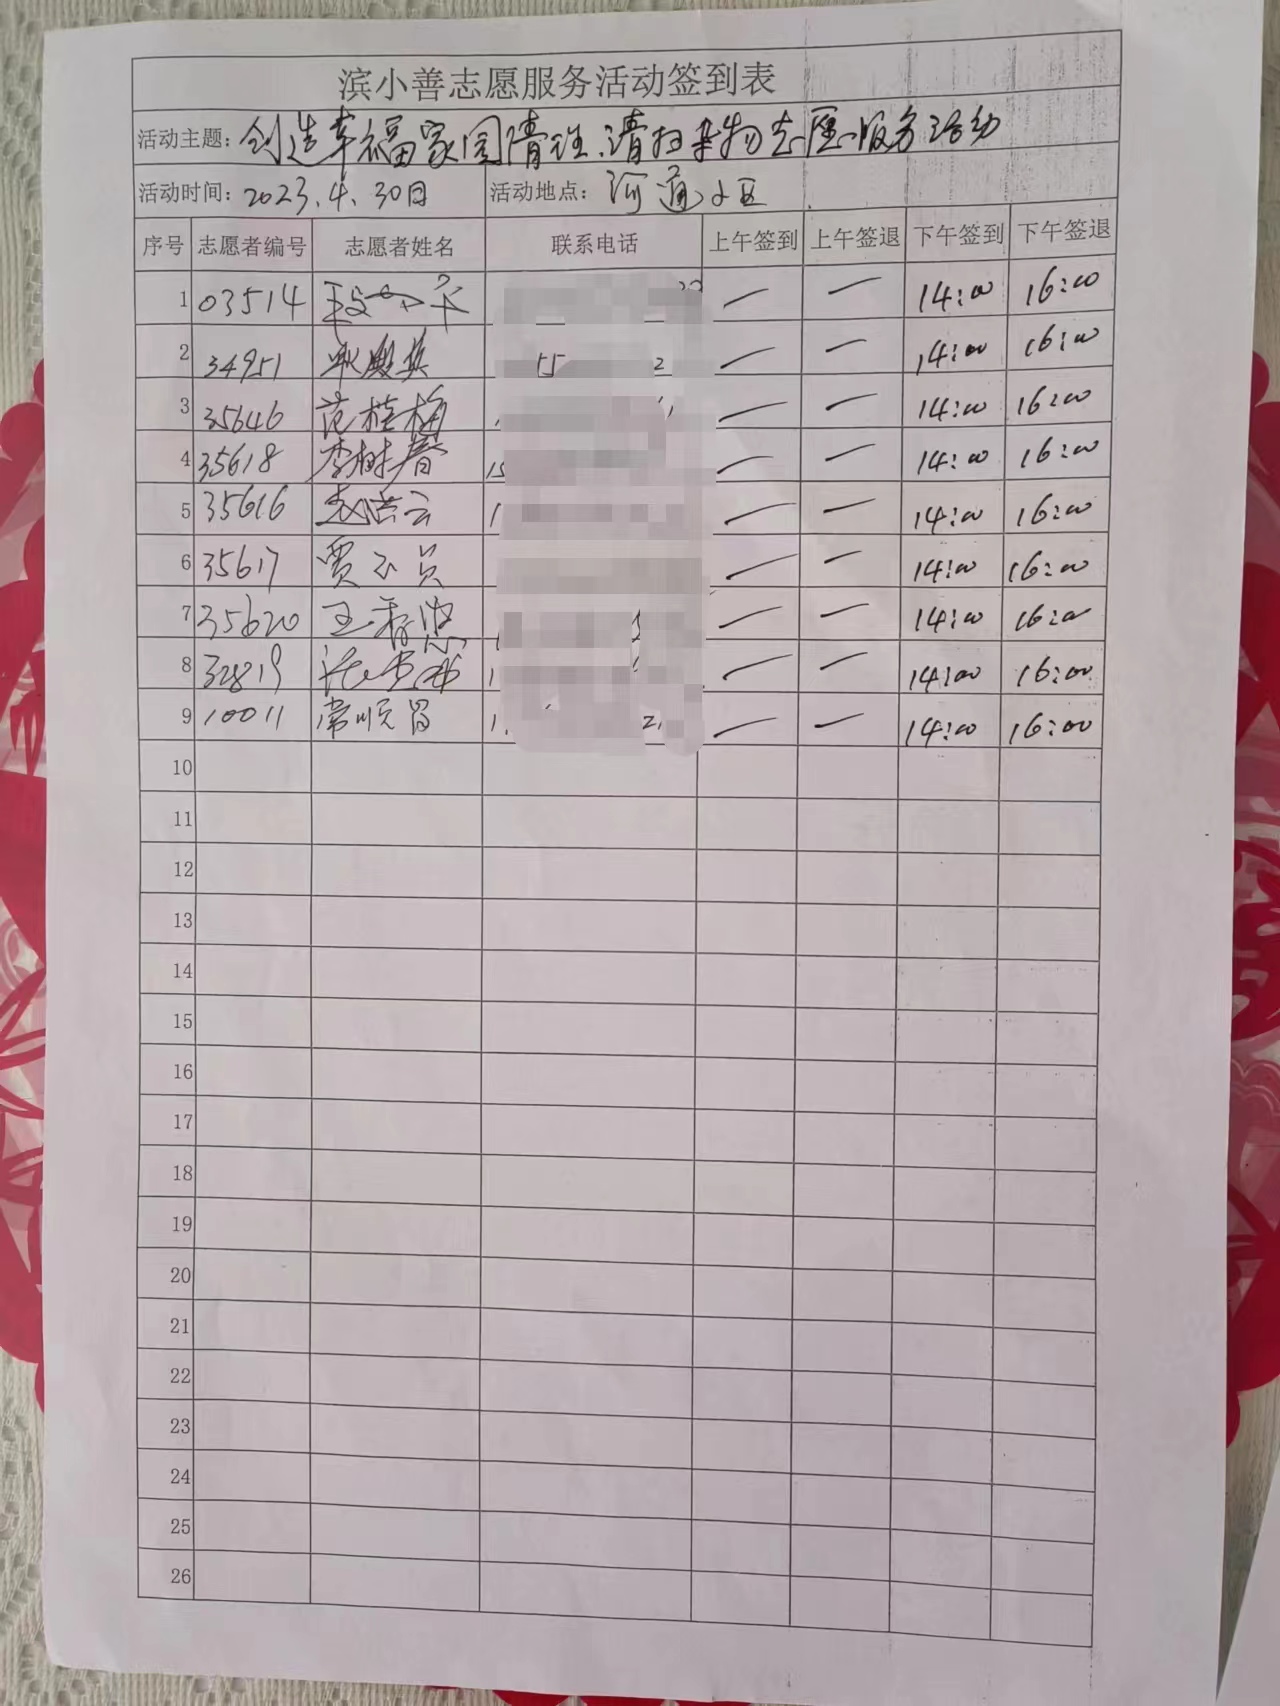 滨小善志愿服务活动签到表
活动主题: 创造幸福家园清理.清扫杂物志愿服务活动
活动时间: 2023.4.30日 活动地点: 河通小区
序号 志愿者编号 志愿者姓名 联系电话 上午签到 上午签退 下午签到 下午签退
1 03514 — — 14:00 16:00
2 34951 — — 14:00 16:00
3 35646 范桂梅 — — 14:00 16:00
4 35618 李树春 — — 14:00 16:00
5 35616 — — 14:00 16:00
6 35617 — — 14:00 16:00
7 35620 — — 14:00 16:00
8 32819 — — 14:00 16:00
9 10011 常顺昌 — — 14:00 16:00
10
11
12
13
14
15
16
17
18
19
20
21
22
23
24
25
26